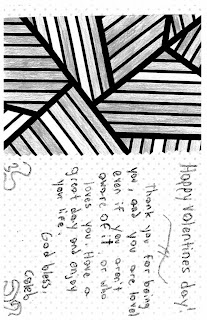 Happy Valentines day!
Thank you for being
you, and you are loved
even if you aren't
aware of it or who
loves you. Have a
great day and enjoy
your life.
God bless,
Caleb